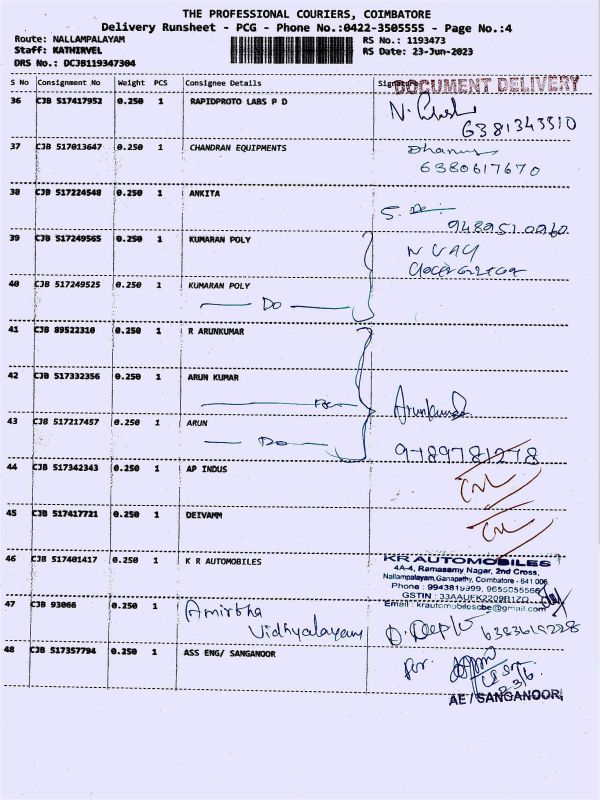 THE PROFESSIONAL COURIERS, COIMBATORE
Delivery Runsheet - PCG - Phone No.:0422-3505555 - Page No.:4
Route: NALLAMPALAYAM
RS No.: 1193473
Staff: KATHIRVEL
RS Date: 23-Jun-2023
DRS No.: DCJB119347304
S No Consignment No Weight PCS Consignee Details Signature
DOCUMENT DELIVERY
36 CJB 517417952 0.250 1 RAPIDPROTO LABS P D
6381343310
37 CJB 517013647 0.250 1 CHANDRAN EQUIPMENTS
6380617670
38 CJB 517224548 0.250 1 ANKITA
9489510060
39 CJB 517249565 0.250 1 KUMARAN POLY
40 CJB 517249525 0.250 1 KUMARAN POLY
Do
41 CJB 89522310 0.250 1 R ARUNKUMAR
42 CJB 517332356 0.250 1 ARUN KUMAR
Arunkumar
43 CJB 517217457 0.250 1 ARUN
Do
9789781278
44 CJB 517342343 0.250 1 AP INDUS
45 CJB 517417721 0.250 1 DEIVAMM
46 CJB 517401417 0.250 1 K R AUTOMOBILES
KR AUTOMOBILES
4A-4, Ramasamy Nagar, 2nd Cross,
Nallampalayam,Ganapathy, Coimbatore - 641 006.
Phone : 9943819999, 9655055566
GSTIN : 33AAUFK2209R1ZO
Email : krautomobilescbe@gmail.com
47 CJB 93066 0.250 1 Amirtha
Vidhyalayam
D. Deepla 6383619228
48 CJB 517357794 0.250 1 ASS ENG/ SANGANOOR
for
23/6
AE / SANGANOOR